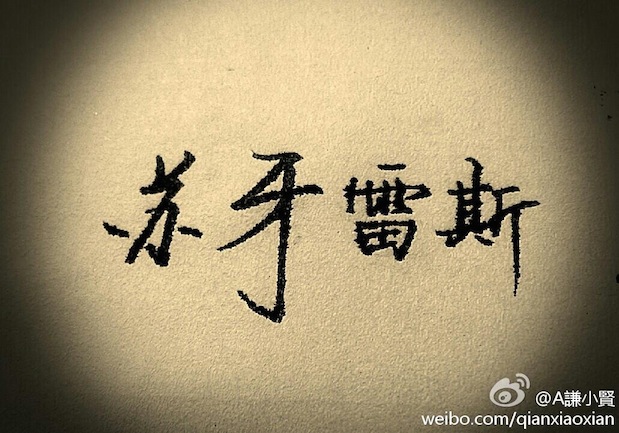 苏牙雷斯
@A謙小賢
weibo.com/qianxiaoxian